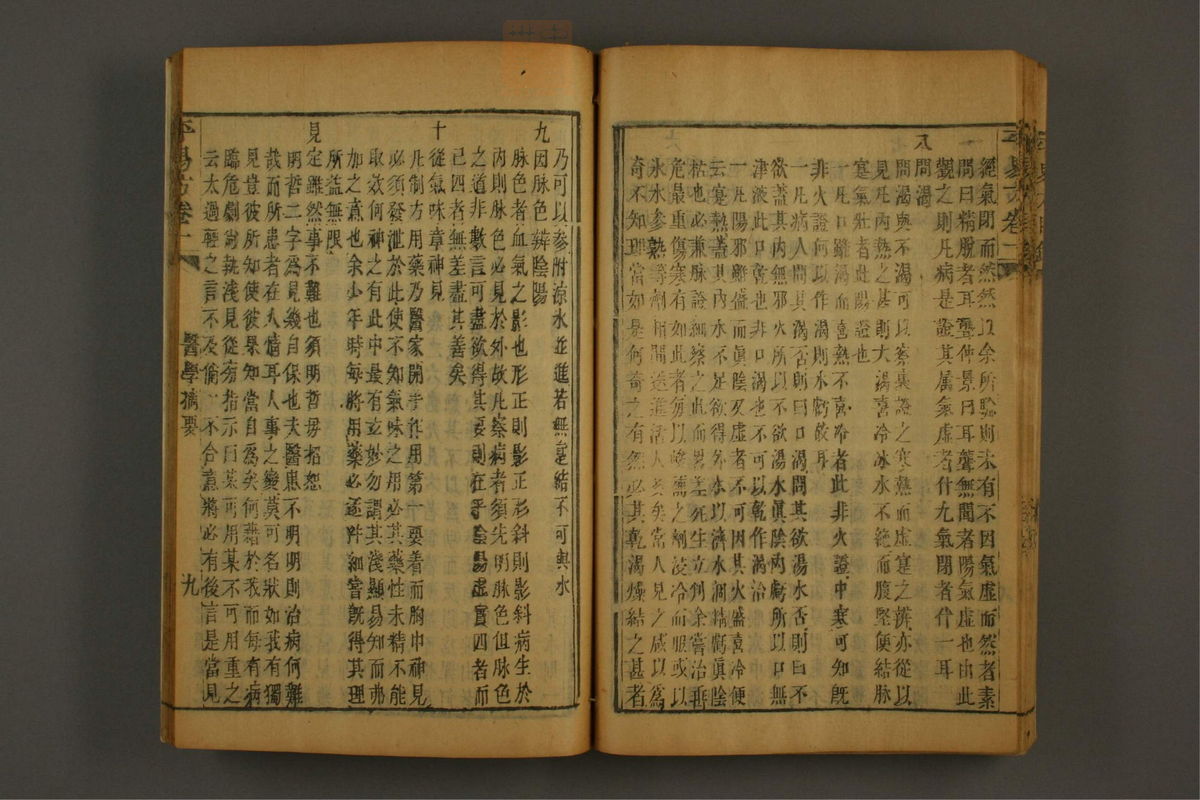 經氣閉而然然以余所驗則未有不因氣虛而然者素
問曰精脫者耳聾仲景曰耳聾無聞者陽氣虛也由此
觀之則凡病是證其属氣虛者什九氣閉者什一耳
八
問渴
問渴與不渴可以察裏證之寒熱而虛寔之辨亦從以
見凡內熱之甚則大渴喜冷冰水不絶而腹堅便結脉
寔氣壯者此陽證也
一凡口雖渴而喜熱不喜冷者此非火證中寒可知旣
非火證何以作渴則水虧故耳
一凡病人問其渴否則曰口渴問其欲湯水否則曰不
欲葢其內無邪火所以不欲湯水眞陰內虧所以口無
津液此口乾也非口渴也不可以乾作渴治
一凡陽邪雖盛而眞陰又虛者不可因其火盛喜冷便
云寔熱葢其內水不足欲得外水以濟水涸精虧眞陰
枯也必兼脉證細察之此而畧差死生立判余嘗治垂
危最重傷寒有如此者每以峻濡之劑浸冷而服或以
氷水參熟等劑相間迭進活人多矣常人見之咸以為
奇不知理當如是何奇之有然必其乾渴燥結之甚者
乃可以參附凉水並進若無寔結不可與水
九因脉色辨陰陽
脉色者血氣之影也形正則影正形斜則影斜病生於
內則脉色必見於外故凡察病者須先明脉色但脉色
之道非數言可盡欲得其要則在乎陰陽虛實四者而
已四者無差盡其善矣
十從氣味章神見
凡制方用藥乃醫家開手作用第一要着而胸中神見
必須發泄於此使不知氣味之用必其藥性未精不能
取效何神之有此中最有玄妙勿謂其淺顯易知而弗
加之意也余少年時每將用藥必逐件細嘗旣得其理
所益無限
見定雖然事不難也須明哲毋招恕
明哲二字為見幾自保也夫醫患不明明則治病何難
哉而所患者在人情耳人事之變莫可名狀如我有獨
見豈彼所知使彼果知當自為矣何藉於我而每有病
臨危劇尚執淺見從旁指示曰某可用某不可用重之
云太過輕之言不及倘一不合意將必有後言是當見
醫學摘要
九